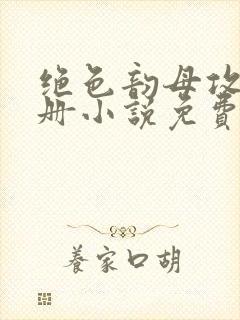 绝色韵母攻
册小说免费
养家口胡